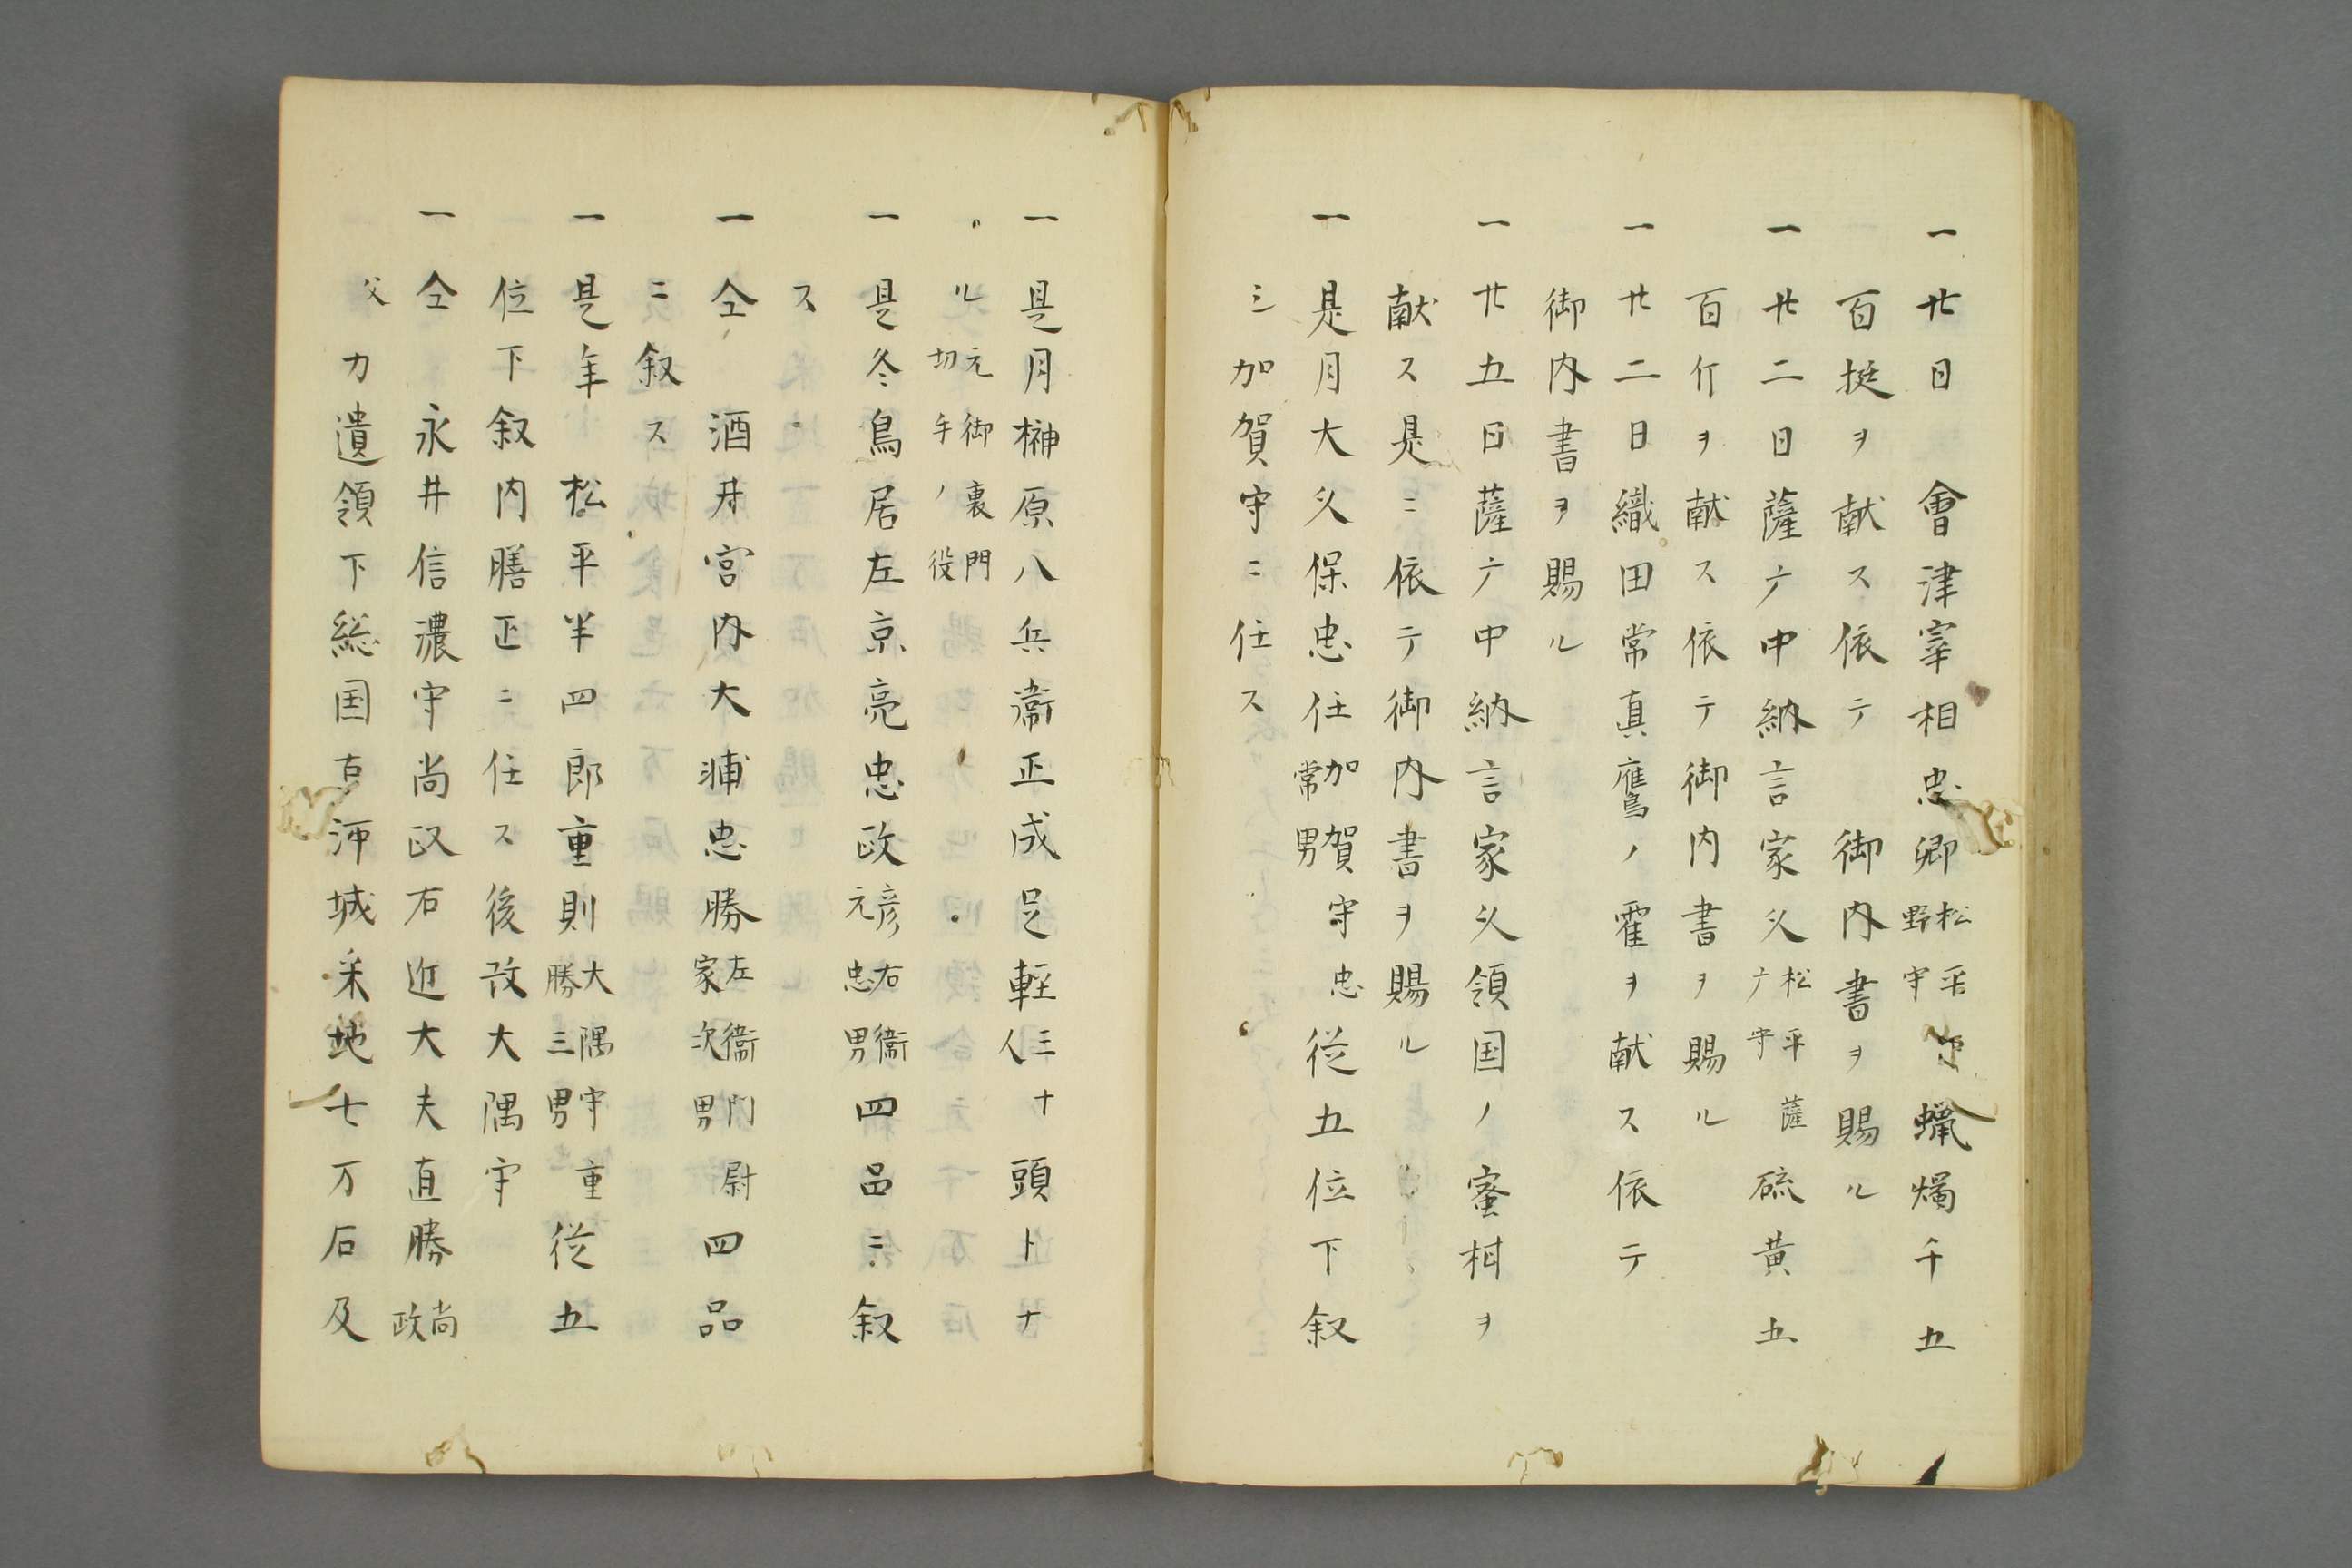 一廿日 會津宰相忠卿松平下野守蝋燭千五
百挺ヲ献ス依テ 御内書ヲ賜ル
一廿二日薩广中納言家久松平薩广守硫黄五
百斤ヲ献ス依テ御内書ヲ賜ル
一廿二日織田常真鷹ノ霍ヲ献ス依テ
御内書ヲ賜ル
一廿五日薩广中納言家久領国ノ蜜柑ヲ
献ス是ニ依テ御内書ヲ賜ル
一是月大久保忠任加賀守忠常男従五位下叙
シ加賀守ニ任ス
一是月榊原八兵衛正成足軽三十人頭トナ
ル元御裏門切手ノ役
一是冬鳥居左京亮忠政彦右衛元忠男四品ニ叙
ス
一仝 酒井宮内大浦忠勝左衛門尉家次男四品
ニ叙ス
一是年 松平半四郎重則大隅守重勝三男従五
位下叙内膳正ニ任ス後改大隅守
一仝 永井信濃守尚政右近大夫直勝尚政
父カ遺領下総国古河城采地七万石及